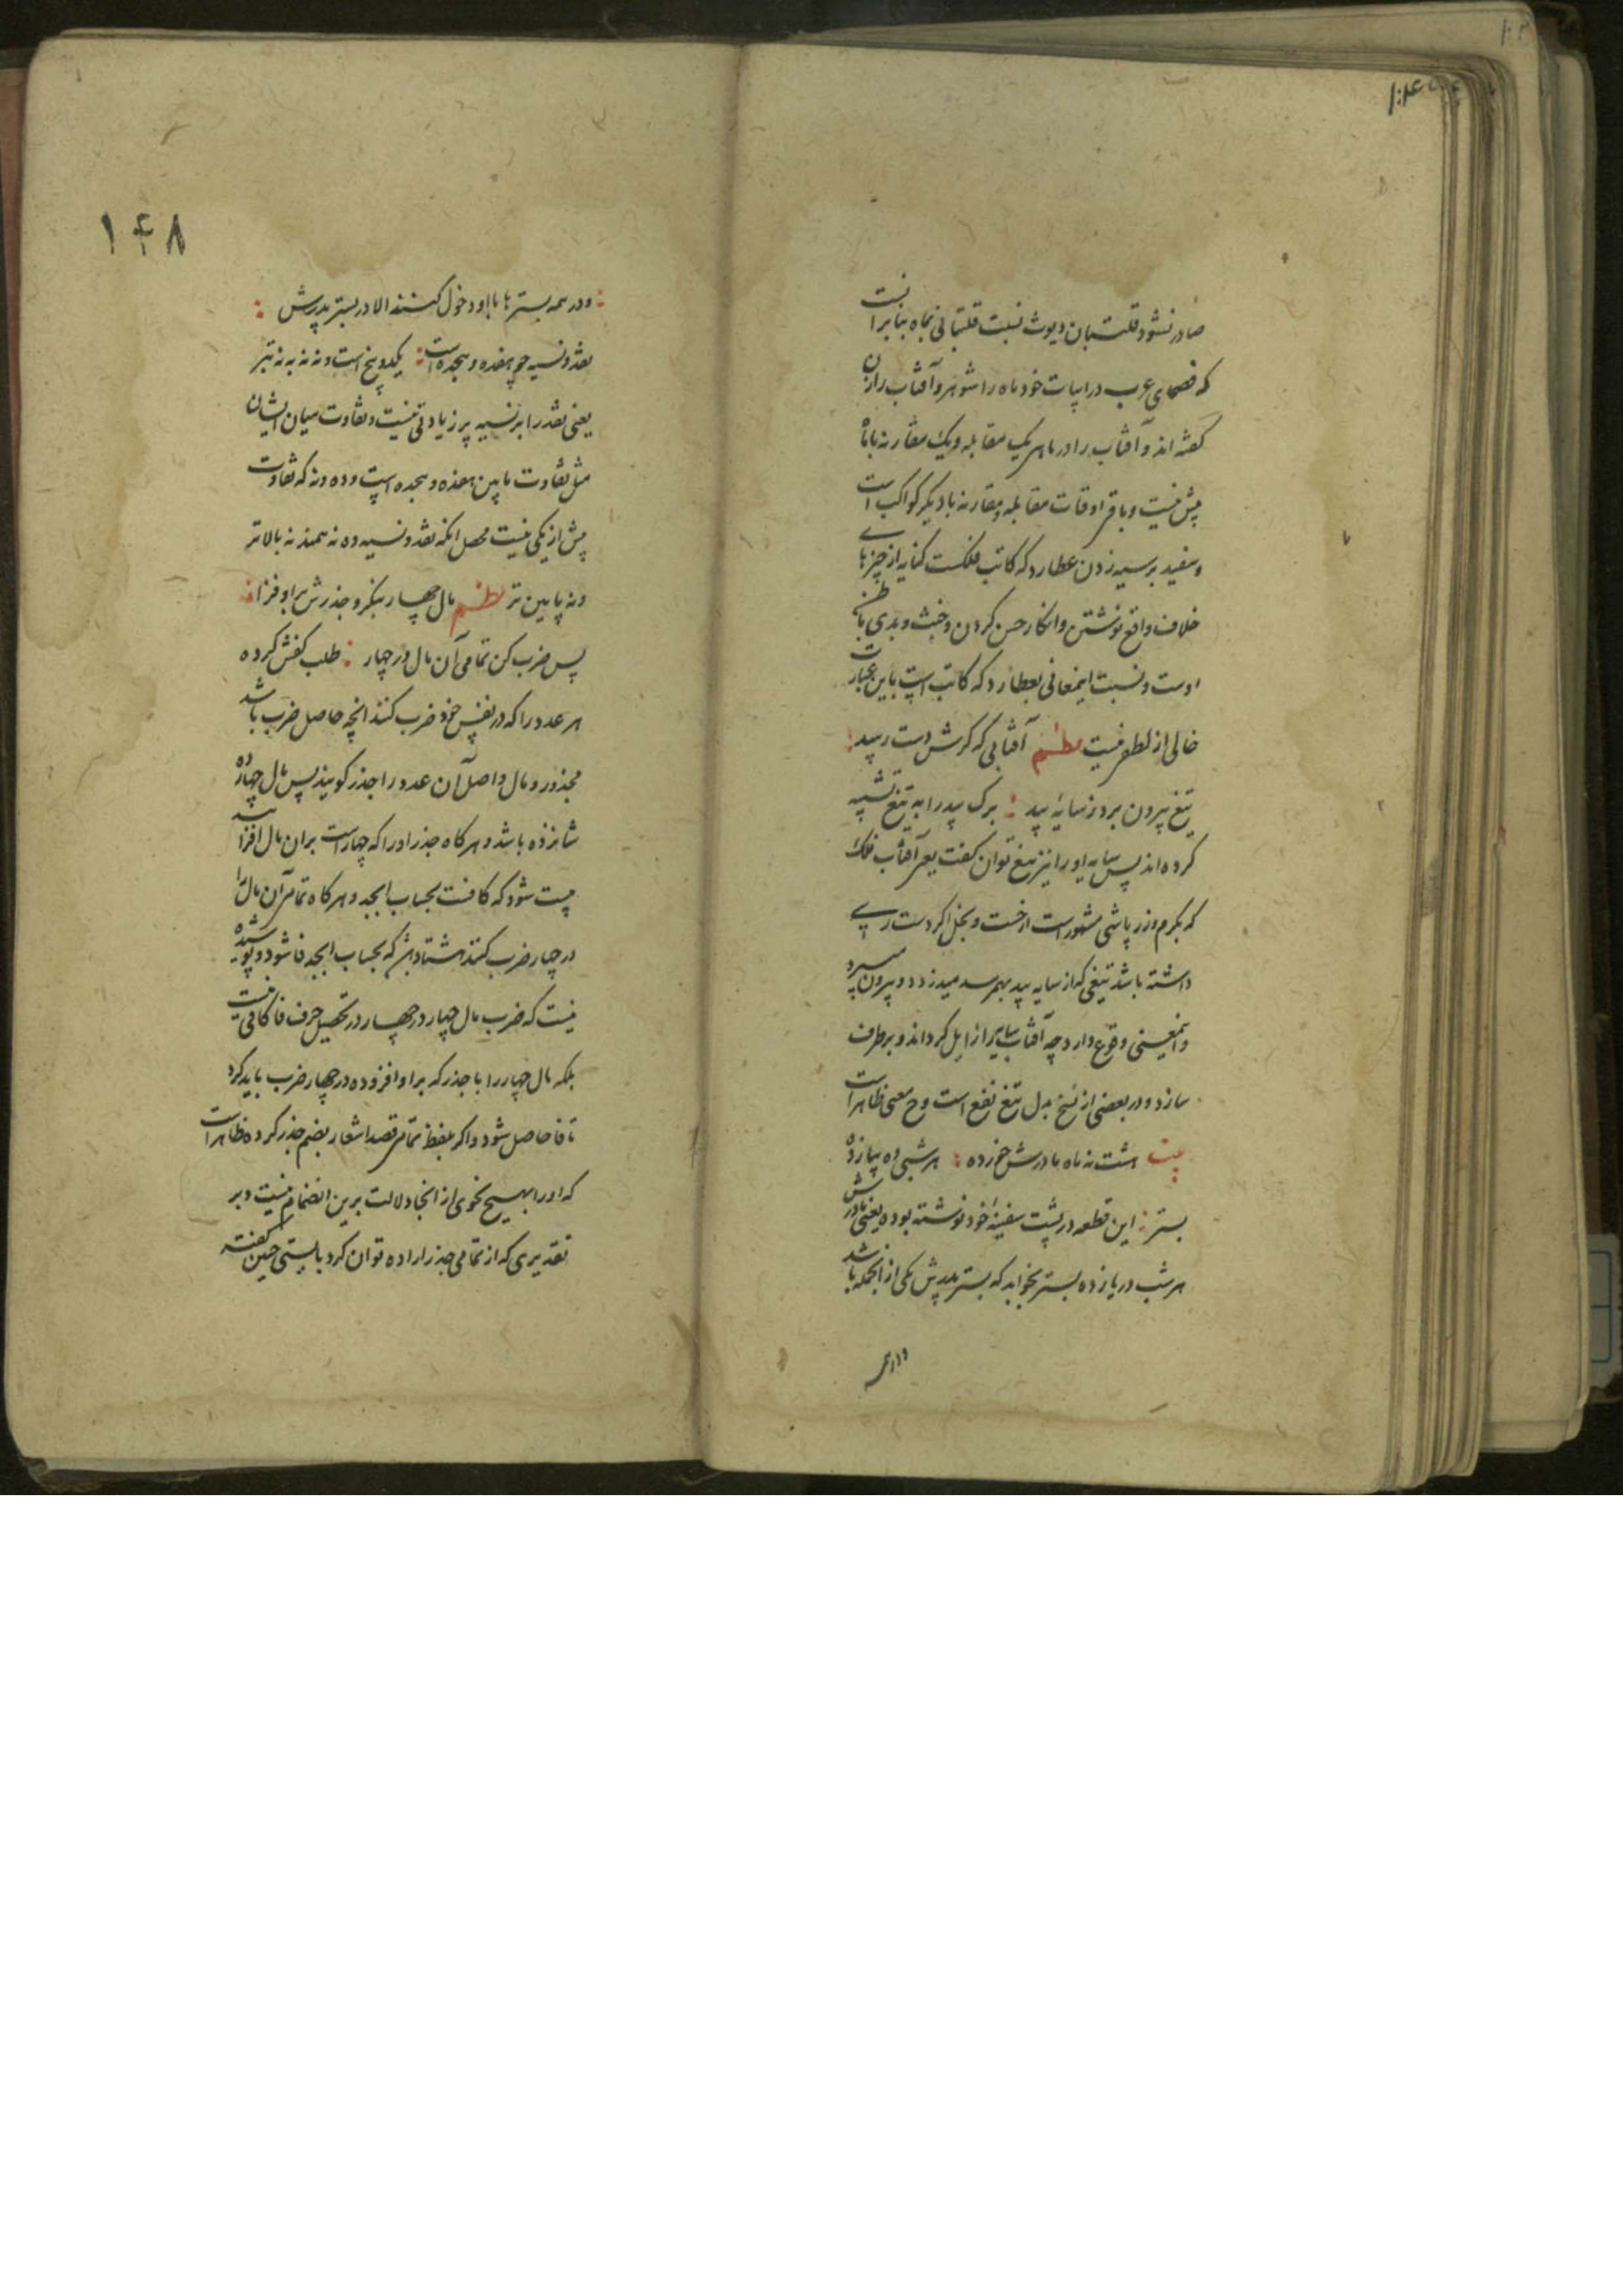 صادر نشود قلتبان دیوث نسبت قلتبانی بماه بنابر آنست
که فصحای عرب در ابیات خود ماه را شوهر و آفتاب را زن
گفته اند و آفتاب را در ماهی یک مقابله و یک مقارنه با ماه
بیش نیست و باقی اوقات مقابله و مقارنه با دیگر کواکب است
و سفید بر سیه زدن عطارد که کاتب فلکست کنایه از چیزهای
خلاف واقع نوشتن و انکار حسن کردن و خبث و بدی باطن
اوست و نسبت اینمعانی بعطارد که کاتب است باین عبارت
خالی از لطفی نیست نظم آفتابی که گرش دست رسید
تیغ بیرون برد ز سایهٔ بید برک بید را به تیغ تشبیه
کرده اند پس سایه او را نیز تیغ توان گفت یعنی آفتاب فلک
که بکرم و زرپاشی مشهور است از خست و بخل اگر دست رسی
داشته باشد تیغی که از سایه بید بهم رسد میدزدد و بیرون میبرد
و اینمعنی وقوع دارد چه آفتاب سایه را زایل گرداند و برطرف
سازد و در بعضی از نسخ بدل تیغ نفع است و ح معنی ظاهر است
بیت هشت نه ماه مادرش خورده هر شبی ده بیازده
بستر این قطعه در پشت سفینهٔ خود نوشته بوده یعنی مادرش
هر شب در یازده بستر بخوابد که بستر پدرش یکی از آنجمله باشد
و در همه
۱۴۸
و در همه بسترها با او دخول کنند الا در بستر پدرش
نقد و نسیه چو هفده و هجده است یکدو پنج است و نه نه به نه تبر
یعنی نقد را بر نسیه پر زیادتی نیست و تفاوت میان ایشان
مثل تفاوت مابین هفده و هجده است و ده و نه که تفاوت
بیش از یکی نیست محصل آنکه نقد و نسیه ده نه همند نه بالاتر
و نه پایین تر نظم مال چهار بنگر و جذرش بر او فزا
پس ضرب کن تمامی آن مال در چهار طلب کفش کرده
هر عدد را که در نفس خود ضرب کنند آنچه حاصل ضرب باشد
مجذور و مال و اصل آن عدد را جذر گویند پس مال چهار
شانزده باشد و هرگاه جذر او را که چهار است بران مال افزایند
بیست شود که کافست بحساب ابجد و هرگاه تمامی آن مال را
در چهار ضرب کنند هشتاد شود که بحساب ابجد فا شود و پوشیده
نیست که ضرب مال چهار در چهار در تحصیل حرف فا کافی نیست
بلکه مال چهار را با جذر که بر او افزوده در چهار ضرب باید کرد
تا فا حاصل شود و اگر بلفظ تمامی قصد اشعار بضم جذر کرده ظاهر است
که او را بهیچ نحوی از انحا دلالت برین انضمام نیست و بر
تقدیری که از تمامی جذر اراده توان کرد بایستی چنین گفته